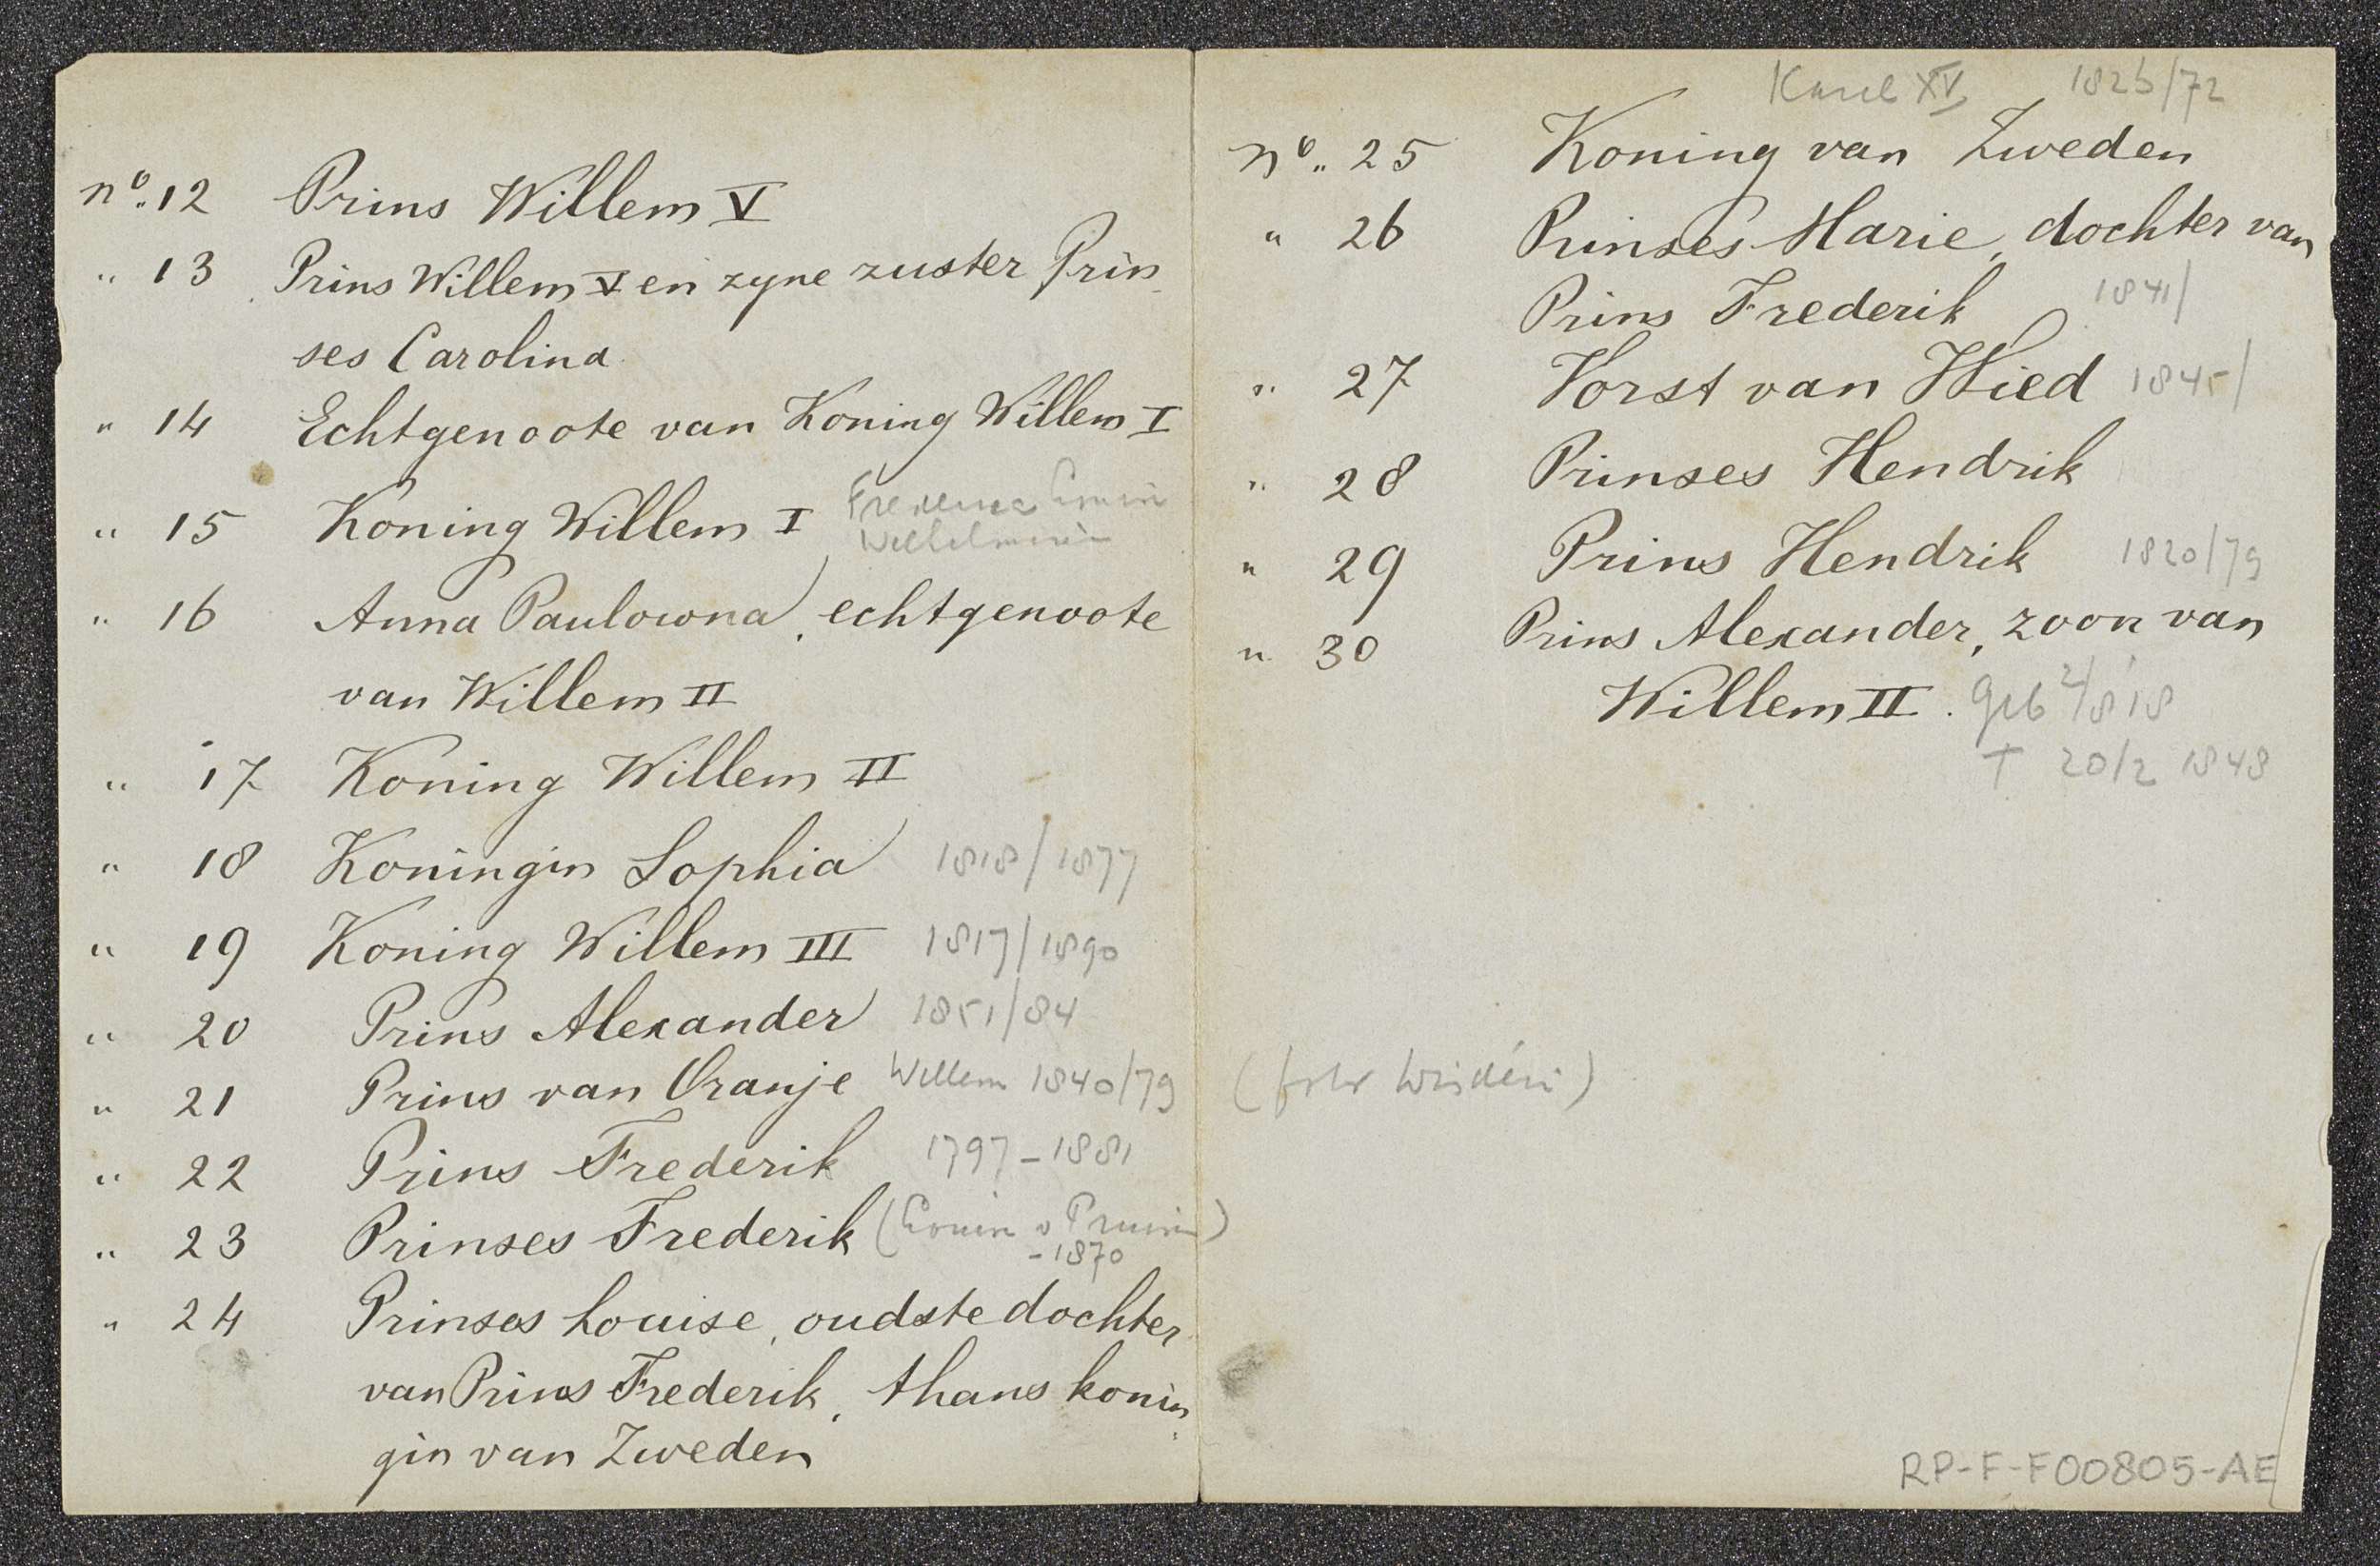 no. 12 Prins Willem V
" 13 Prins Willem V en zyne zuster Prin
ses Carolina
" 14 Echtgenoote van Koning Willem I
" 15 Koning Willem I
" 16 Anna Paulowna, echtgenoote
van Willem II
" 17 Koning Willem II
" 18 Koningin Sophia 1818/1877
" 19 Koning Willem III 1817/1890
" 20 Prins Alexander 1851/84
" 21 Prins van Oranje Willem 1840/79
" 22 Prins Frederik 1797-1881
" 23 Prinses Frederik
-1870
" 24 Prinses Louise, oudste dochter
van Prins Frederik, thans konin
gin van Zweden
Karel XV 1826/72
no. 25 Koning van Zweden
" 26 Prinses Marie, dochter van
Prins Frederik 1841/
" 27 Vorst van Wied 1845/
" 28 Prinses Hendrik
" 29 Prins Hendrik 1820/79
" 30 Prins Alexander, zoon van
Willem II. geb 2/8 '18
† 20/2 1848
RP-F-F00805-AE